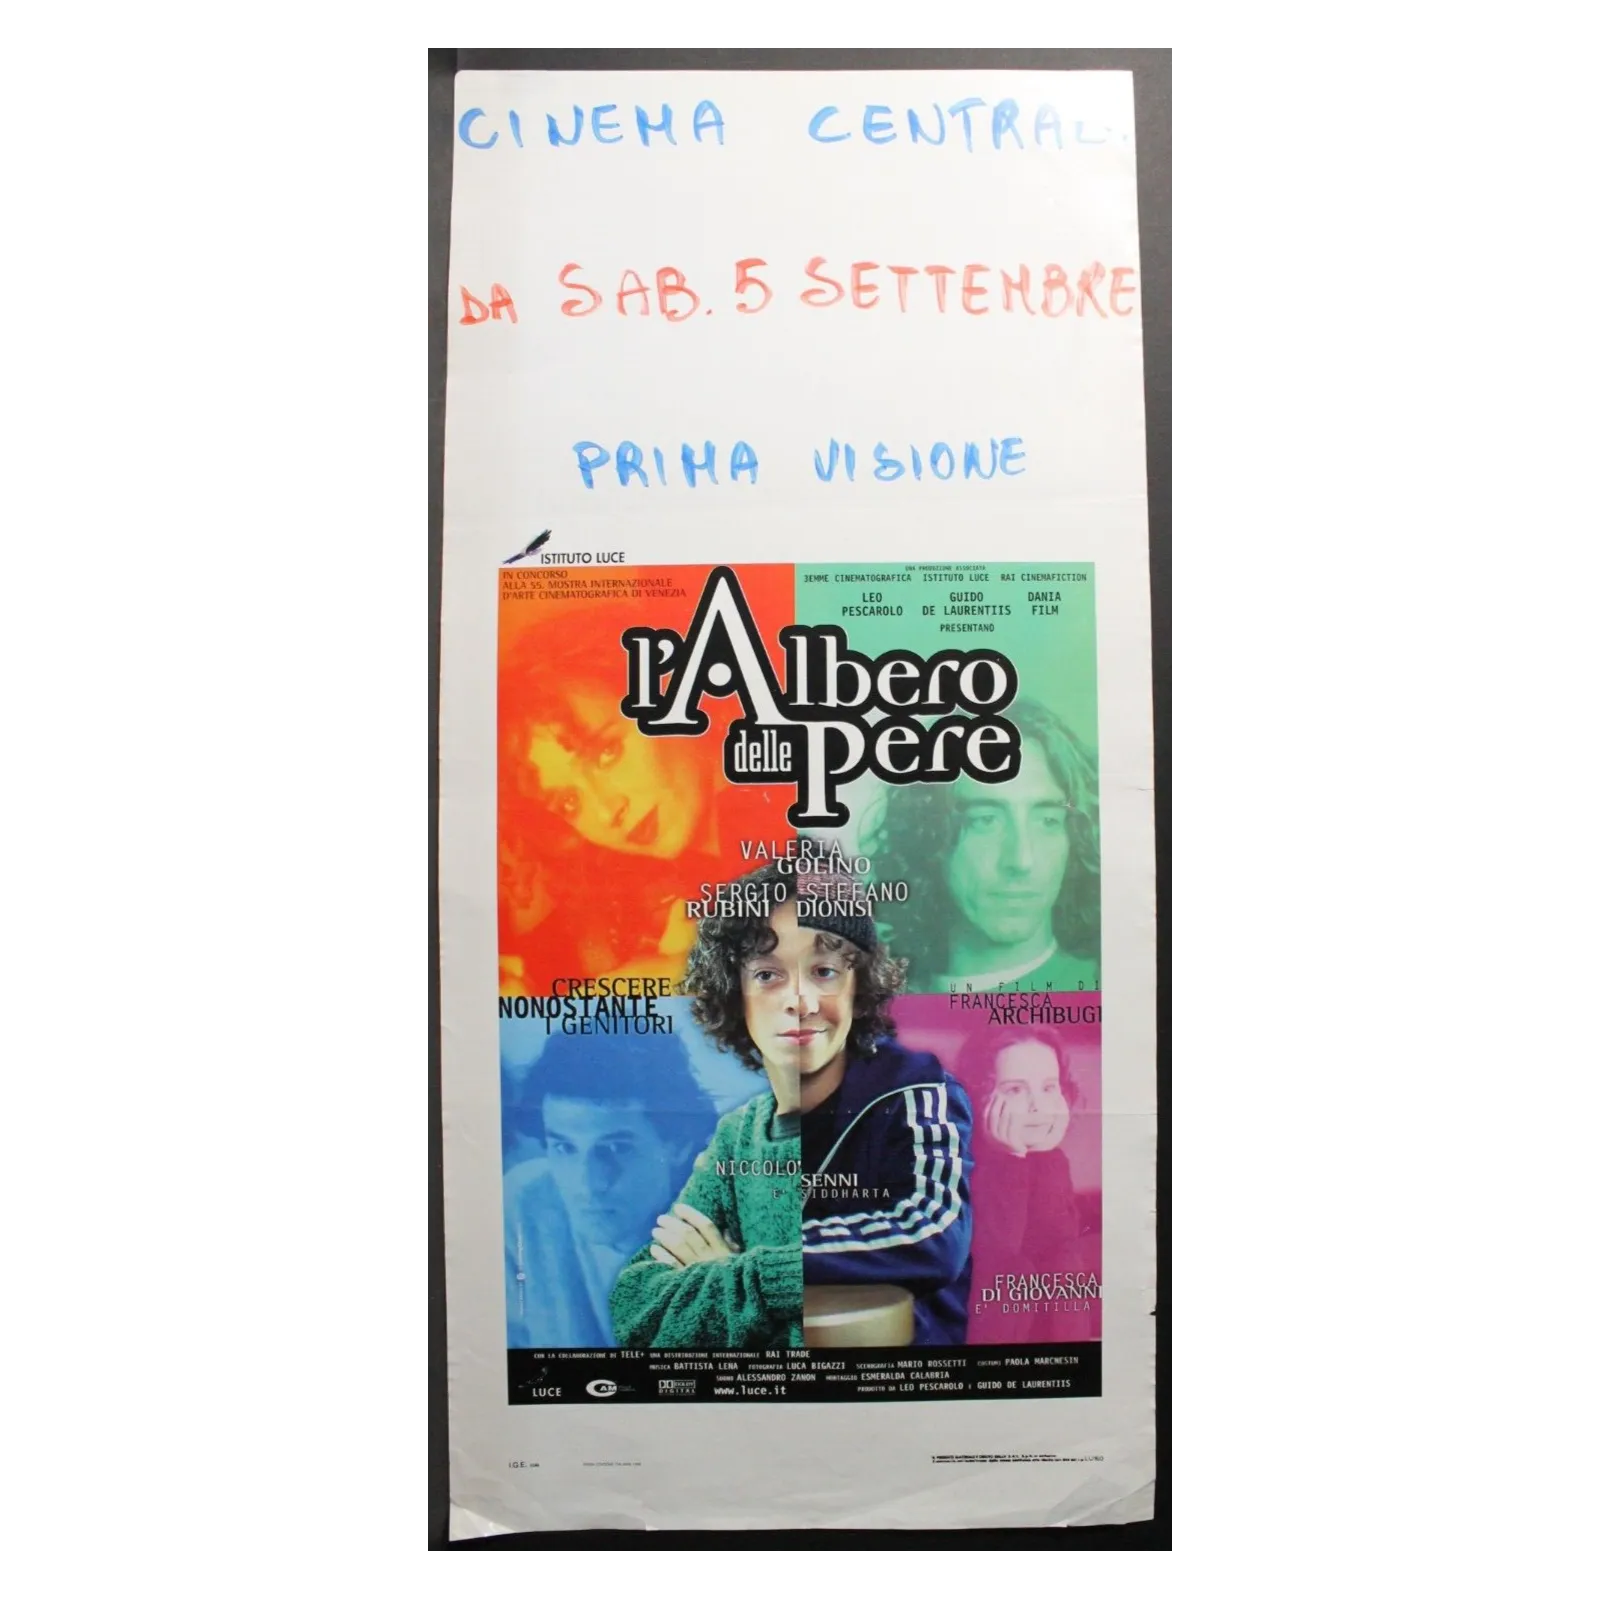 CINEMA CENTRAL
DA SAB. 5 SETTEMBRE
PRIMA VISIONE
ISTITUTO LUCE
IN CONCORSO
ALLA 55. MOSTRA INTERNAZIONALE
D'ARTE CINEMATOGRAFICA DI VENEZIA
UNA PRODUZIONE ASSOCIATA
3EMME CINEMATOGRAFICA ISTITUTO LUCE RAI CINEMAFICTION
LEO PESCAROLO
GUIDO DE LAURENTIIS
DANIA FILM
PRESENTANO
l'Albero
delle Pere
VALERIA
GOLINO
SERGIO STEFANO
RUBINI DIONISI
CRESCERE
NONOSTANTE
I GENITORI
UN FILM DI
FRANCESCA
ARCHIBUGI
NICCOLO' SENNI
E' SIDDHARTA
FRANCESCA
DI GIOVANNI
E' DOMITILLA
CON LA COLLABORAZIONE DI TELE+ UNA DISTRIBUZIONE INTERNAZIONALE RAI TRADE
MUSICA BATTISTA LENA FOTOGRAFIA LUCA BIGAZZI SCENOGRAFIA MARIO ROSSETTI COSTUMI PAOLA MARCHESIN
SUONO ALESSANDRO ZANON MONTAGGIO ESMERALDA CALABRIA
LUCE CAM DOLBY DIGITAL www.luce.it PRODOTTO DA LEO PESCAROLO E GUIDO DE LAURENTIIS
I.G.E.